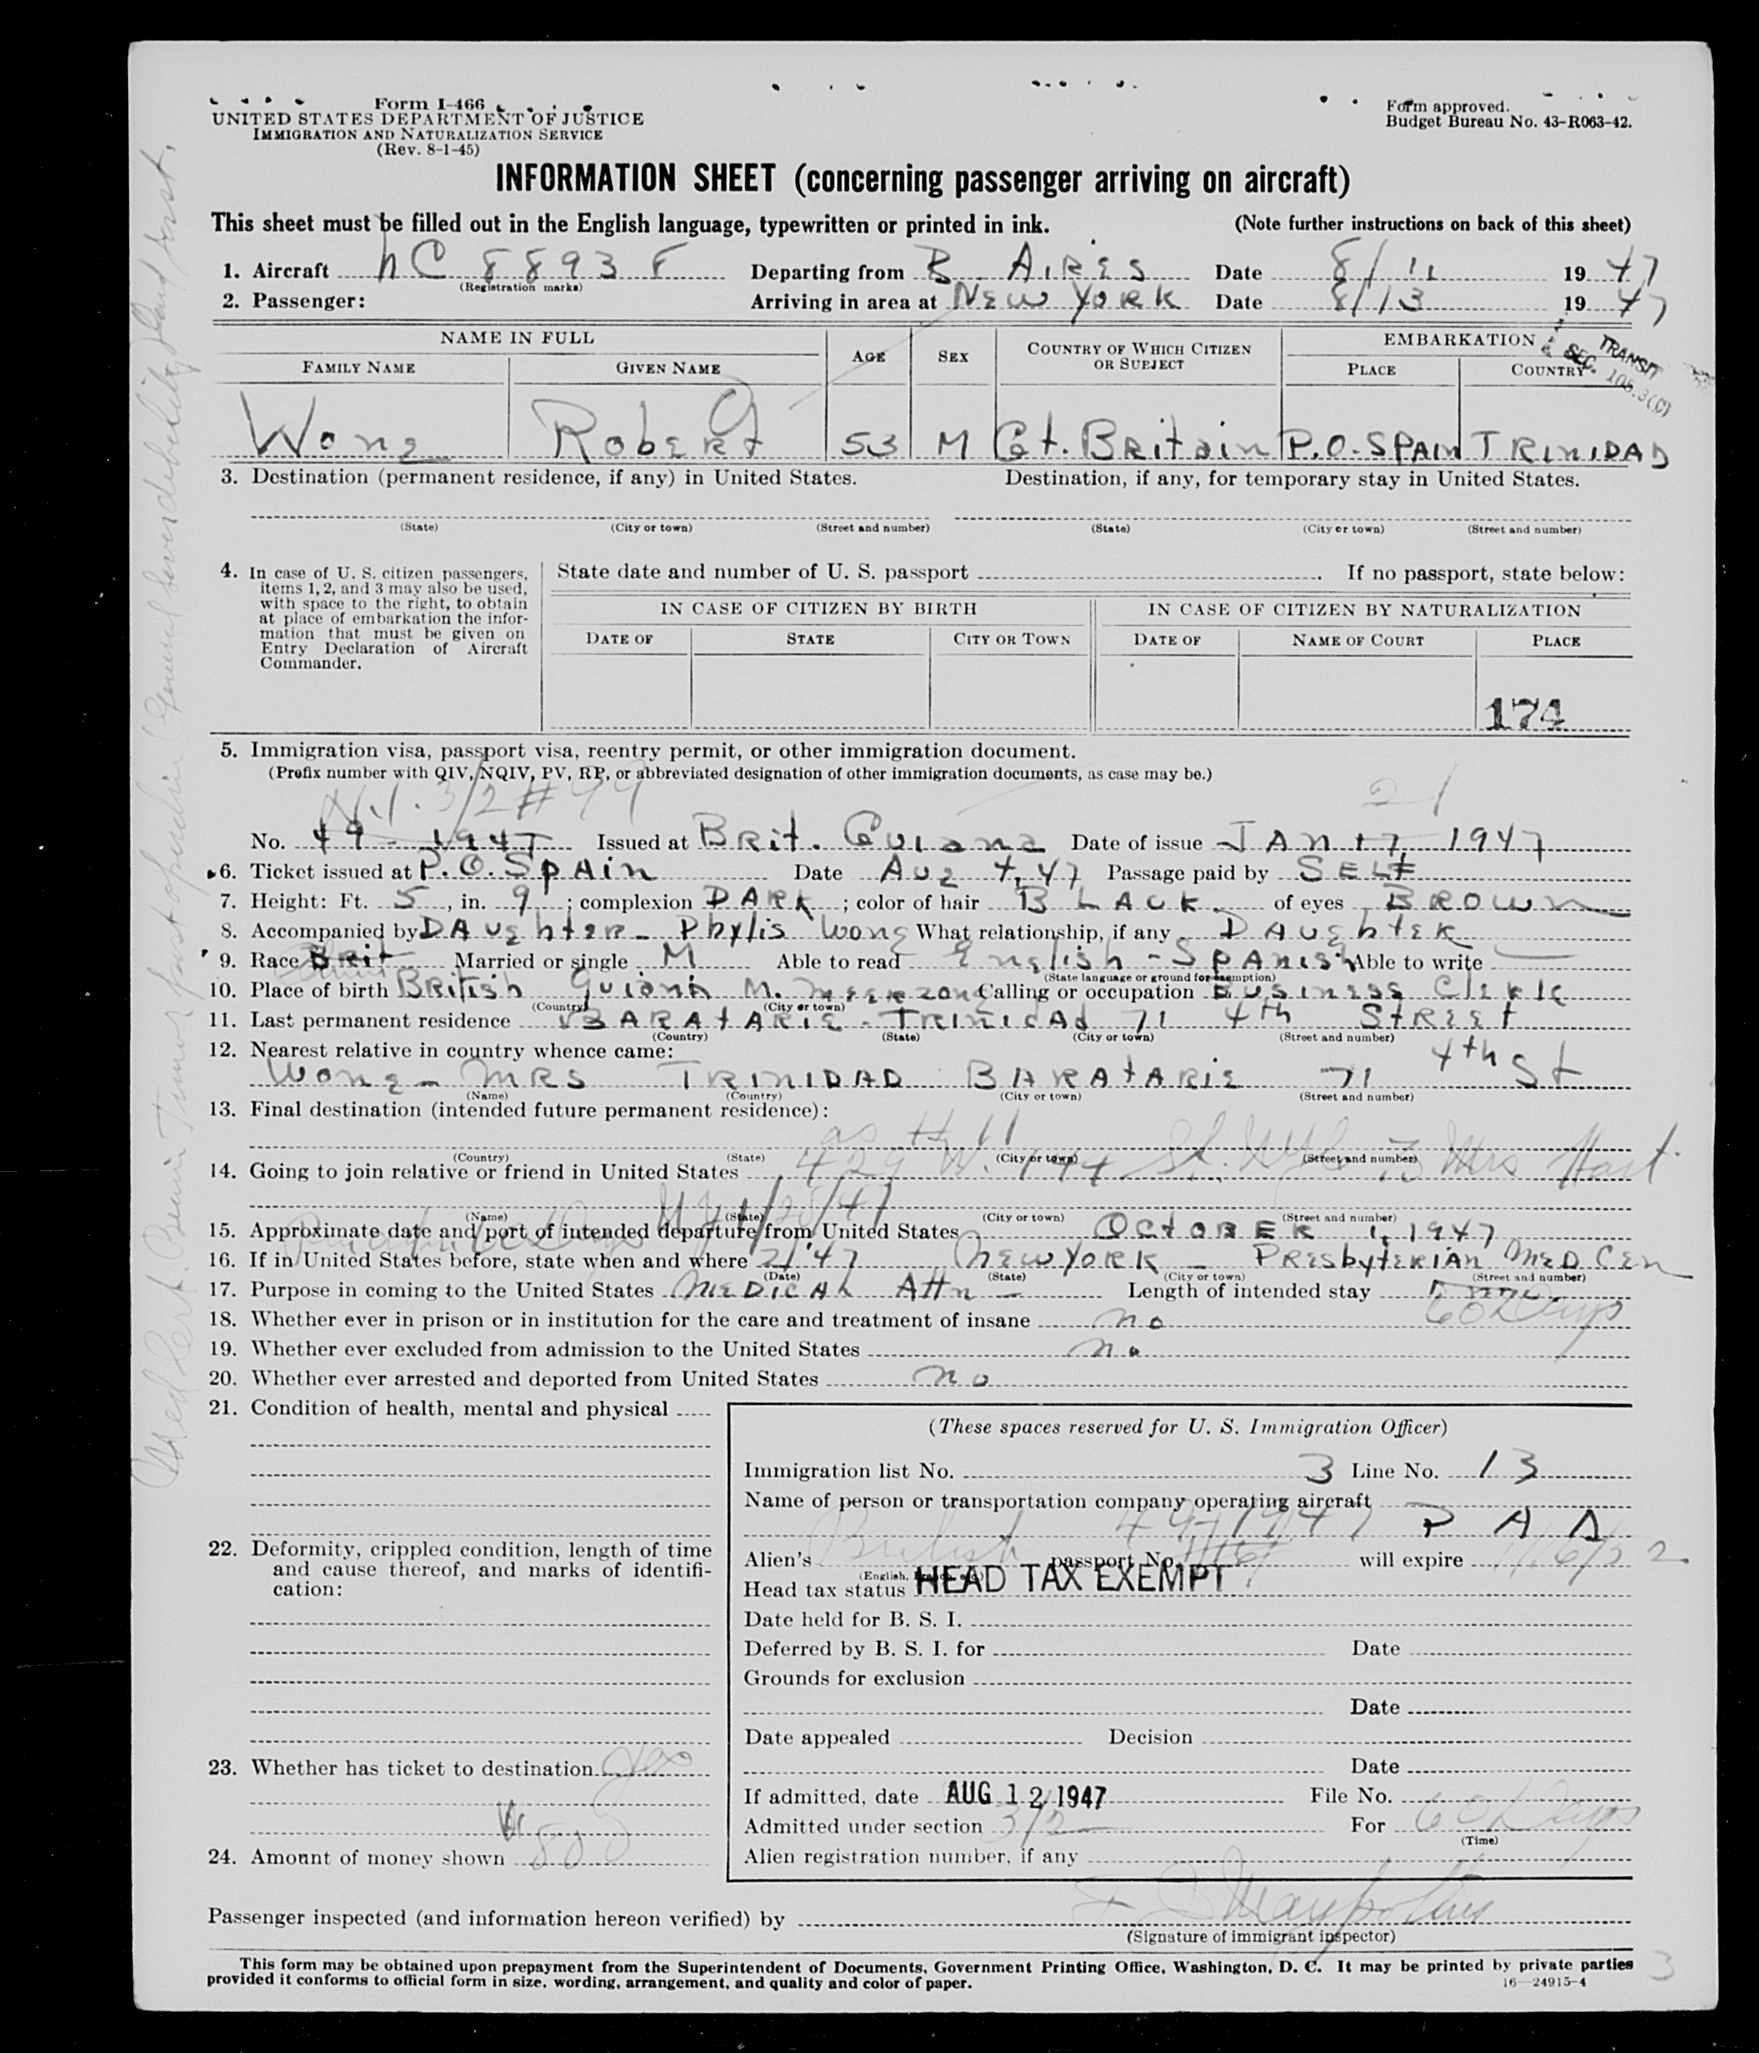 Form I-466
UNITED STATES DEPARTMENT OF JUSTICE
IMMIGRATION AND NATURALIZATION SERVICE
(Rev. 8-1-45)
Form approved.
Budget Bureau No. 43-R063-42.
INFORMATION SHEET (concerning passenger arriving on aircraft)
This sheet must be filled out in the English language, typewritten or printed in ink. (Note further instructions on back of this sheet)
1. Aircraft NC 8893 F Departing from B. AIRES Date 8/11 1947
(Registration marks)
2. Passenger: Arriving in area at NEW YORK Date 8/13 1947
NAME IN FULL AGE SEX COUNTRY OF WHICH CITIZEN OR SUBJECT EMBARKATION
FAMILY NAME GIVEN NAME PLACE COUNTRY
TRANSIT
SEC. 105.3(C)
Wong Robert 53 M Gt. Britain P.O. SPAIN TRINIDAD
3. Destination (permanent residence, if any) in United States. Destination, if any, for temporary stay in United States.
(State) (City or town) (Street and number) (State) (City or town) (Street and number)
4. In case of U. S. citizen passengers, items 1, 2, and 3 may also be used, with space to the right, to obtain at place of embarkation the information that must be given on Entry Declaration of Aircraft Commander.
State date and number of U. S. passport . If no passport, state below:
IN CASE OF CITIZEN BY BIRTH IN CASE OF CITIZEN BY NATURALIZATION
DATE OF STATE CITY OR TOWN DATE OF NAME OF COURT PLACE
174
5. Immigration visa, passport visa, reentry permit, or other immigration document.
(Prefix number with QIV, NQIV, PV, RP, or abbreviated designation of other immigration documents, as case may be.)
3/2 # 99 21
No. 49 - 1947 Issued at Brit. Guiana Date of issue JAN 17, 1947
6. Ticket issued at P.O. SPAIN Date Aug 4, 47 Passage paid by SELF
7. Height: Ft. 5, in. 9; complexion DARK; color of hair BLACK of eyes BROWN
8. Accompanied by DAUghter - Phylis Wong What relationship, if any DAUghter
9. Race Brit Married or single M Able to read English - Spanish Able to write
(State language or ground for exemption)
10. Place of birth British Guiana Calling or occupation Business Clerk
(Country) (City or town)
11. Last permanent residence BARATARIE - TRINIDAD 71 4th STREET
(Country) (State) (City or town) (Street and number)
12. Nearest relative in country whence came:
Wong - MRS TRINIDAD BARATARIE 71 4th St
(Name) (Country) (City or town) (Street and number)
13. Final destination (intended future permanent residence):
as # 11
(Country) (State) (City or town) (Street and number)
14. Going to join relative or friend in United States 429 W. 144 St. NYC Mrs Hart
(Name) (State) (City or town) (Street and number)
15. Approximate date and port of intended departure from United States OCTOBER 1, 1947
16. If in United States before, state when and where 2/'47 NEW YORK - PRESbyTERIAN MED CEN
(Date) (State) (City or town) (Street and number)
17. Purpose in coming to the United States MEDICAL Attn - Length of intended stay 60 Days
18. Whether ever in prison or in institution for the care and treatment of insane no
19. Whether ever excluded from admission to the United States no
20. Whether ever arrested and deported from United States no
21. Condition of health, mental and physical
(These spaces reserved for U. S. Immigration Officer)
Immigration list No. 3 Line No. 13
Name of person or transportation company operating aircraft
P A A
22. Deformity, crippled condition, length of time and cause thereof, and marks of identification:
Alien's British passport No. 49-1947 will expire
(English, French, etc.)
Head tax status HEAD TAX EXEMPT
Date held for B. S. I.
Deferred by B. S. I. for Date
Grounds for exclusion
Date
Date appealed Decision
23. Whether has ticket to destination yes
Date
If admitted, date AUG 12 1947 File No.
Admitted under section 3/2 For 60 Days
(Time)
24. Amount of money shown
Alien registration number, if any
Passenger inspected (and information hereon verified) by
(Signature of immigrant inspector)
This form may be obtained upon prepayment from the Superintendent of Documents, Government Printing Office, Washington, D. C. It may be printed by private parties
provided it conforms to official form in size, wording, arrangement, and quality and color of paper. 16—24915-4
3